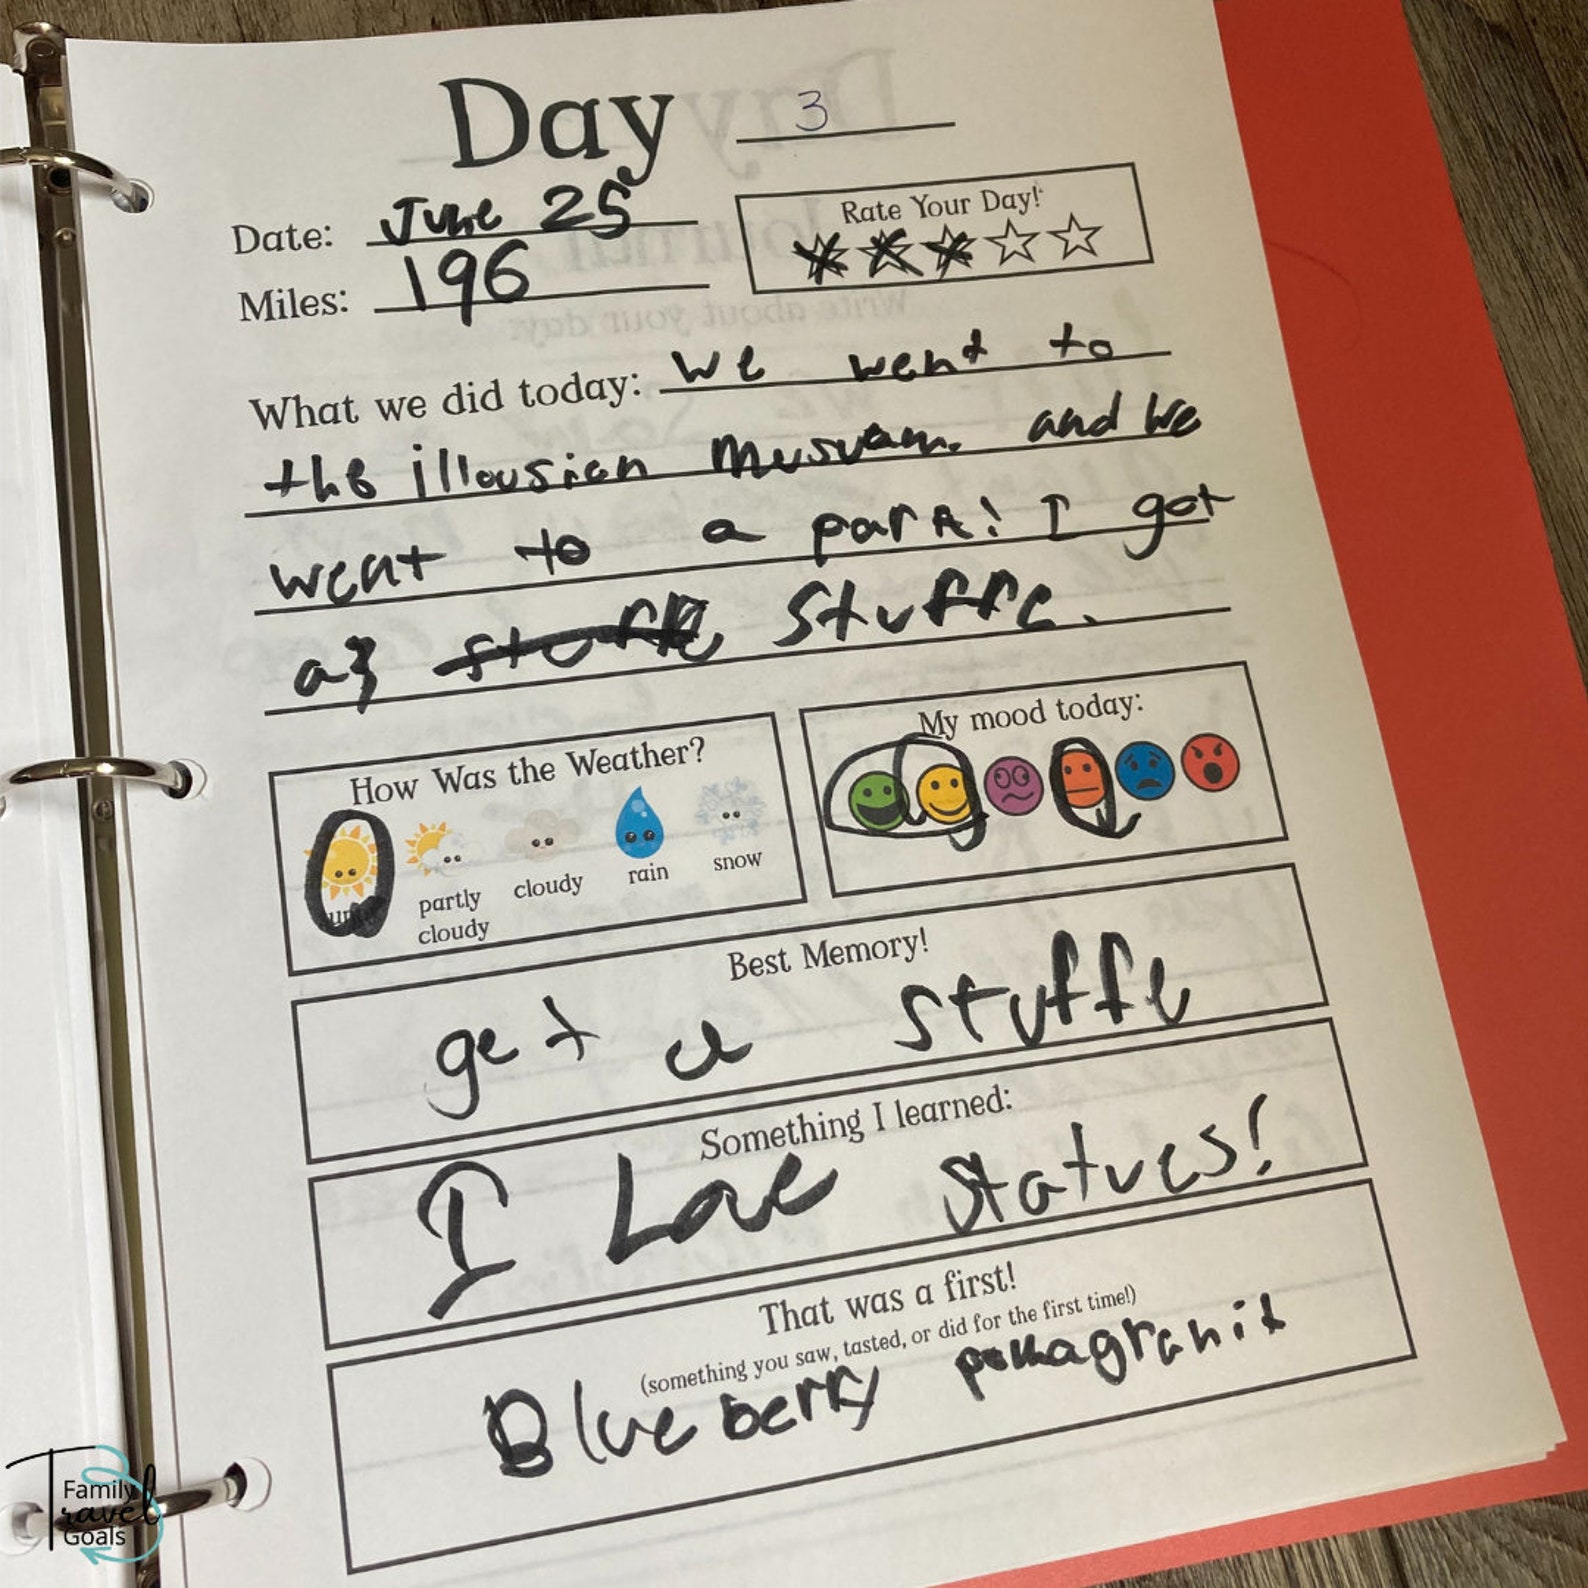 Day 3
Date: June 25
Rate Your Day!
Miles: 196
What we did today: we went to
the illousion musuam. and we
went to a park! I got
a stuffe.
How Was the Weather?
partly cloudy
cloudy
rain
snow
My mood today:
Best Memory!
get a stuffe
Something I learned:
I Love statues!
That was a first!
(something you saw, tasted, or did for the first time!)
Blueberry pomagranit
Family
Travel
Goals